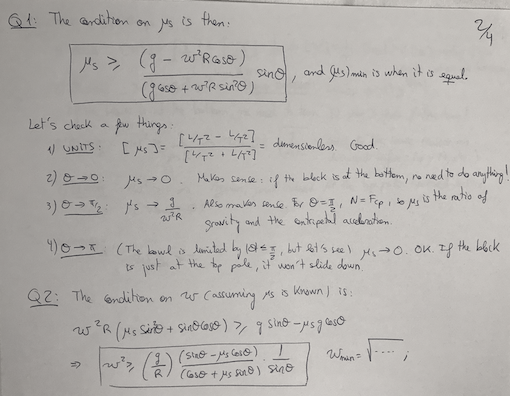 2/4
Q1: The condition on μs is then:
μs ≥ (g - ω²Rcosθ) / (gcosθ + ω²Rsin²θ) sinθ, and (μs)min is when it is equal.
Let's check a few things:
1) UNITS: [μs] = [L/T² - L/T²] / [L/T² + L/T²] = dimensionless. Good.
2) θ→0: μs → 0. Makes sense: if the block is at the bottom, no need to do anything!
3) θ→π/2: μs → g/ω²R. Also makes sense. For θ=π/2, N = Fcp, so μs is the ratio of
gravity and the centripetal acceleration.
4) θ→π (The bowl is limited by |θ| ≤ π/2, but let's see) μs → 0. OK. If the block
is just at the top pole, it won't slide down
Q2: The condition on ω (assuming μs is known) is:
ω²R(μs sin²θ + sinθcosθ) ≥ g sinθ - μs g cosθ
⇒ ω² ≥ (g/R) (sinθ - μs cosθ) / (cosθ + μs sinθ) · 1/sinθ ωmin = √···· ;